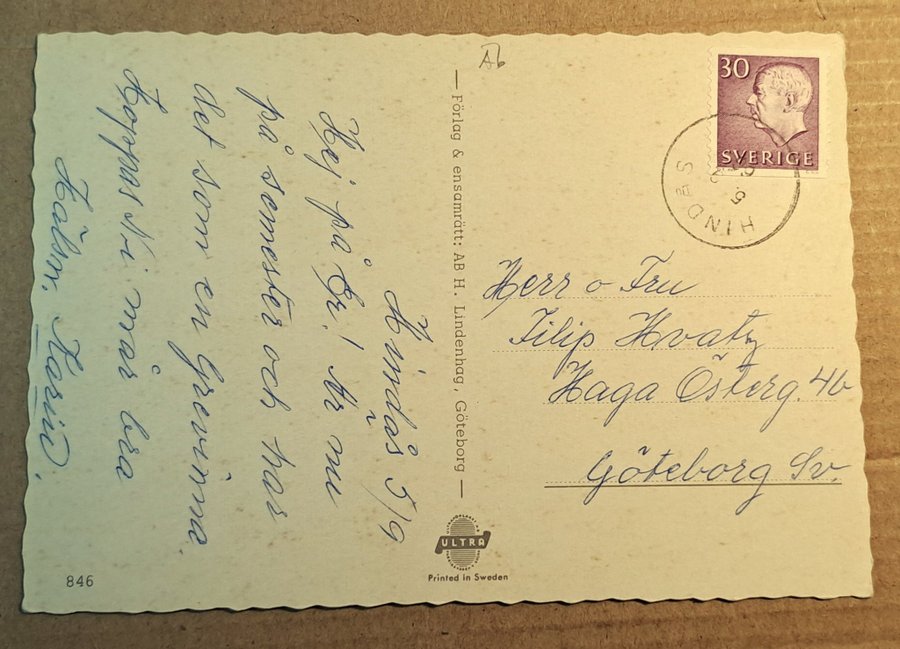 Hindås 5/9
Hej på Er! Är nu
på semester och har
det som en Grevinna.
Hoppas Ni mår bra
Hälsn. Karin.
Förlag & ensamrätt: AB H. Lindenhag, Göteborg
Ab
30
SVERIGE
HINDÅS
5. 9
Herr o Fru
Filip Hvatz
Haga Österg. 4b
Göteborg Sv.
ULTRA
Printed in Sweden
846